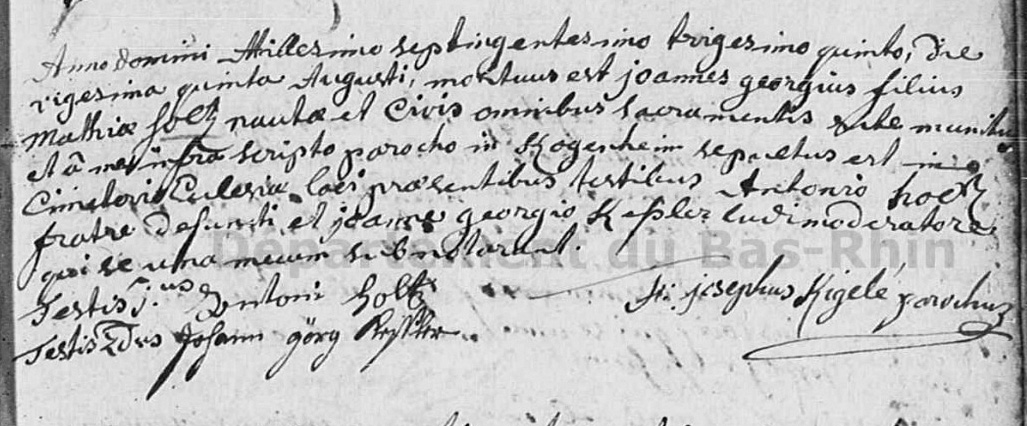 Anno domini Millesimo septingentesimo trigesimo quinto, die
vigesima quinta Augusti, mortuus est joannes georgius filius
Mathiæ holtz nautæ et Civis omnibus sacramentis rite munitus
et â me infra scripto parocho in Kogenheim sepultus est in
Cimeterio Eclesiæ loci præsentibus testibus Antonio holtz
fratre defuncti et joanne georgio Kessler ludimoderatore,
qui se una mecum subnotarunt.
Testis j.us Antoni holtz
fr. josephus Kigelé parochus
Testis 2dus Johann görg Kessler
Département du Bas-Rhin